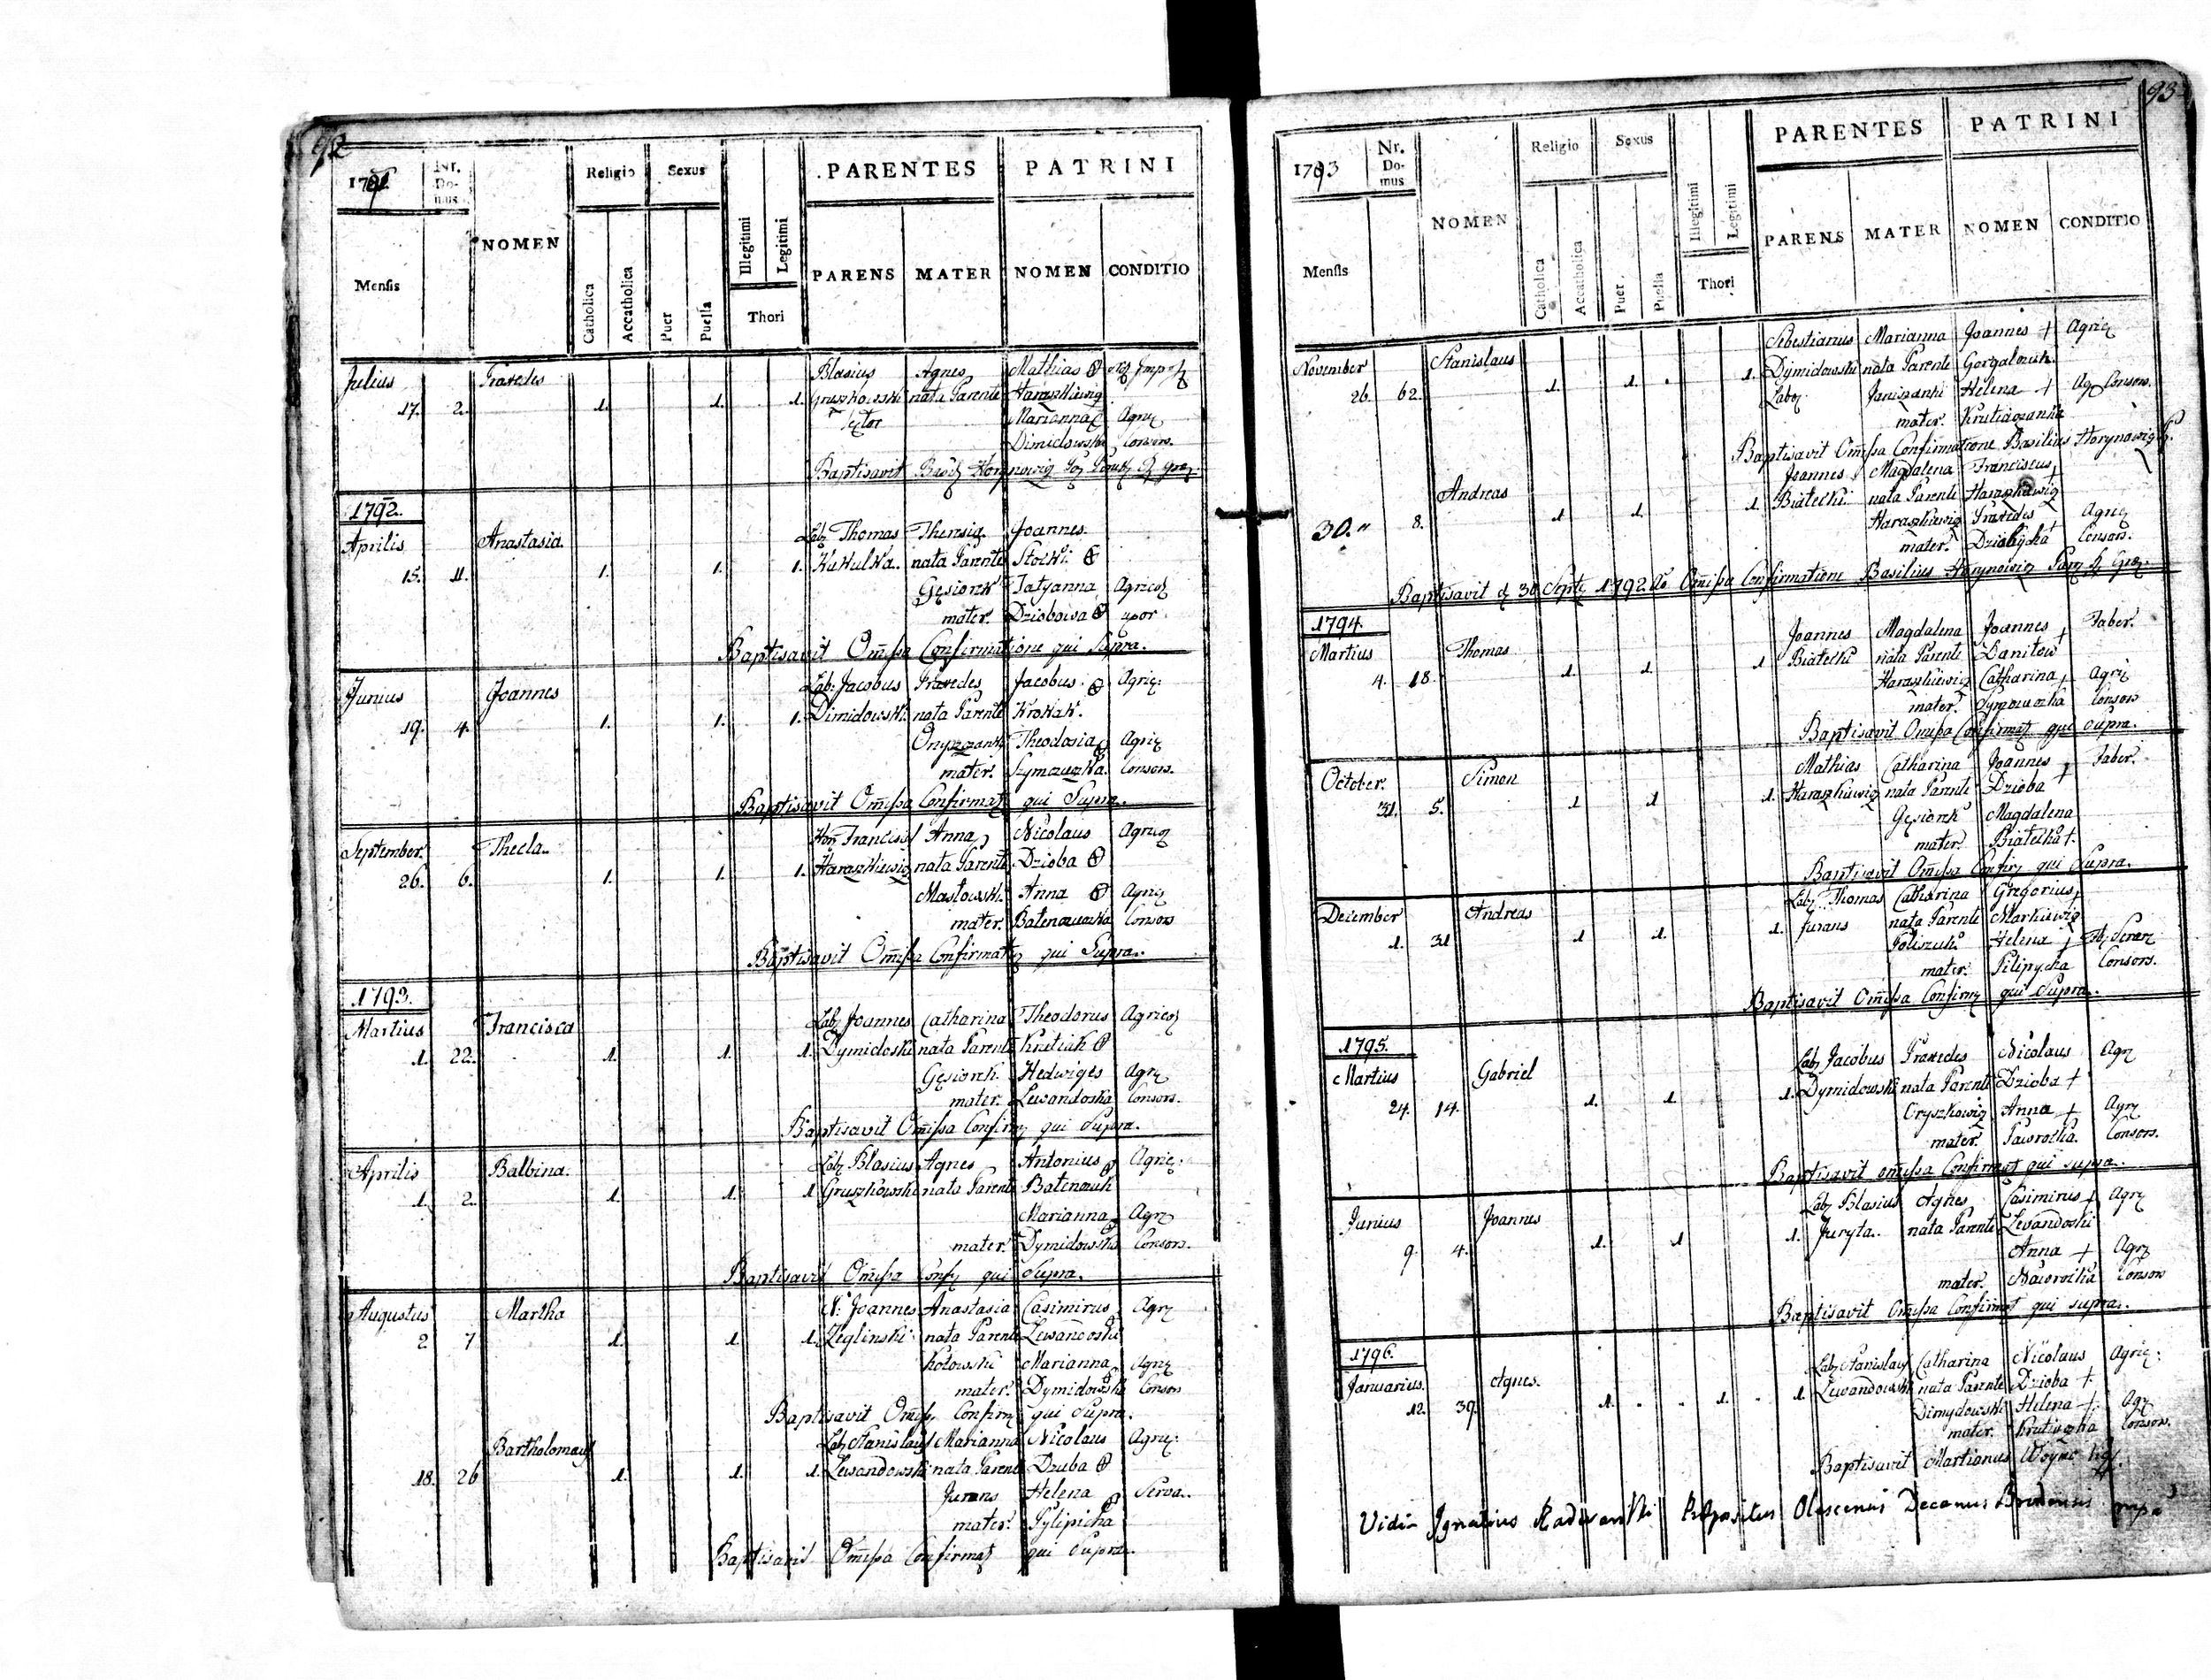 92
1791
Nr. Domus
NOMEN
Religio
Sexus
PARENTES
PATRINI
Mensis
Catholica
Accatholica
Puer
Puella
Illegitimi
Legitimi
Thori
PARENS
MATER
NOMEN
CONDITIO
Julius Praxedes Blasius Agnes Mathias
17. 2. 1. 1. 1. Gruszkowski nata Parente
Marianna Agric
Dimidowska Consors.
Baptisavit
1792.
Aprilis Anastasia Lab Thomas Joannes.
15. 11. 1. 1. 1. Kukulka. nata Parente Stocki
Gęsiorek Tatyanna Agricol
mater. Dziobowa uxor
Baptisavit Omissa Confirmatione qui Supra.
Junius Joannes Lab: Jacobus Praxedes Jacobus. Agric:
19. 4. 1. 1. 1. Dimidowski nata Parente Krokak.
Theodosia Agric
mater. Szymczuszka. Consors.
Baptisavit Omissa Confirmat qui Supra.
September. Thecla. Francisc Anna Nicolaus Agricol
26. 6. 1. 1. 1. Haraszkiewic nata Parente Dzioba
Masłowski. Anna Agric
mater. Consors
Baptisavit Omissa Confirmat qui Supra.
1793.
Martius Francisca Lab Joannes Catharina Theodorus Agricol
1. 22. 1. 1. 1. Dymidoski nata Parente Krutiak
Gęsiorek. Hedwiges Agr
mater. Lewandoska Consors.
Baptisavit Omissa Confirm qui Supra.
Aprilis Balbina. Lab Blasius Agnes Antonius Agric:
1. 2. 1. 1. 1. Gruszkowski nata Parente
Marianna Agr
mater. Dymidowska Consors.
Baptisavit Omissa Conf qui Supra.
Augustus Martha N: Joannes Anastasia Casimirus Agr
2 7 1. 1. 1. Zeglinski nata Parente Lewandoski
Kotowski Marianna Agric
mater. Dymidowska Consors
Baptisavit Omiss Confirm qui Supra.
Bartholomaus Lab Stanislaus Marianna Nicolaus Agric:
18. 26 1. 1. 1. Lewandowski nata Parente Dzuba
Jurans Helena Serva.
mater. Pylipicha
Baptisavit Omissa Confirmat qui Supra.
93
1793
Nr. Domus
NOMEN
Religio
Sexus
PARENTES
PATRINI
Mensis
Catholica
Accatholica
Puer
Puella
Illegitimi
Legitimi
Thori
PARENS
MATER
NOMEN
CONDITIO
November Stanislaus Sebestianus Marianna Joannes + Agric
26. 62. 1. 1. 1. Dymidowski nata Parente
Lab Helena + Ag Consors.
mater.
Baptisavit Omissa Confirmatione Basilius Horynowicz
Andreas Joannes Magdalena Franciscus
30." 8. 1. 1. 1. Białecki nata Parente Haraszkiewicz
Haraszkiewicz Praxedis Agric
mater. Consors.
Baptisavit d 30 Septr 1792 Omissa Confirmatione Basilius Horynowicz
1794.
Martius Thomas Joannes Magdalena Joannes + Faber.
4. 18. 1. 1. 1 Białecki nata Parente Danilow
Haraszkiewicz Catharina + Agri
mater. Consors
Baptisavit Omissa Confirmat qui Supra.
October. Simon Mathias Catharina Joannes + Faber.
31. 5. 1 1 1. Haraszkiewicz nata Parente Dzioba
Gęsiorek Magdalena
mater. Białecka +.
Baptisavit Omissa Confir qui Supra.
December Andreas Lab Thomas Catharina Gregorius +
1. 31 1 1. 1. Jurans nata Parente Markiewicz
Poliszuk Helena +
mater. Pilipycha Consors.
Baptisavit Omissa Confirm qui Supra.
1795.
Martius Gabriel Lab Jacobus Praxedes Nicolaus Agr
24. 14. 1. 1. 1. Dymidowski nata Parente Dzioba +
Anna + Agr
mater. Consors.
Baptisavit omissa Confirmat qui supra.
Junius Joannes Lab Blasius Agnes Casimirus + Agr
9. 4. 1. 1 1. Juryta. nata Parente Lewandoski
Anna + Agr
mater. Consors
Baptisavit Omissa Confirmat qui supra.
1796.
Januarius. Agnes. Lab Stanislaus Catharina Nicolaus Agric:
12. 39. 1. 1. 1. Lewandowski nata Parente Dzioba +.
Dimydowski Helena +. Agr
mater. Consors.
Baptisavit Martianus
Vidi Ignatius Praepositus Olescensis Decanus Brodensis mpa